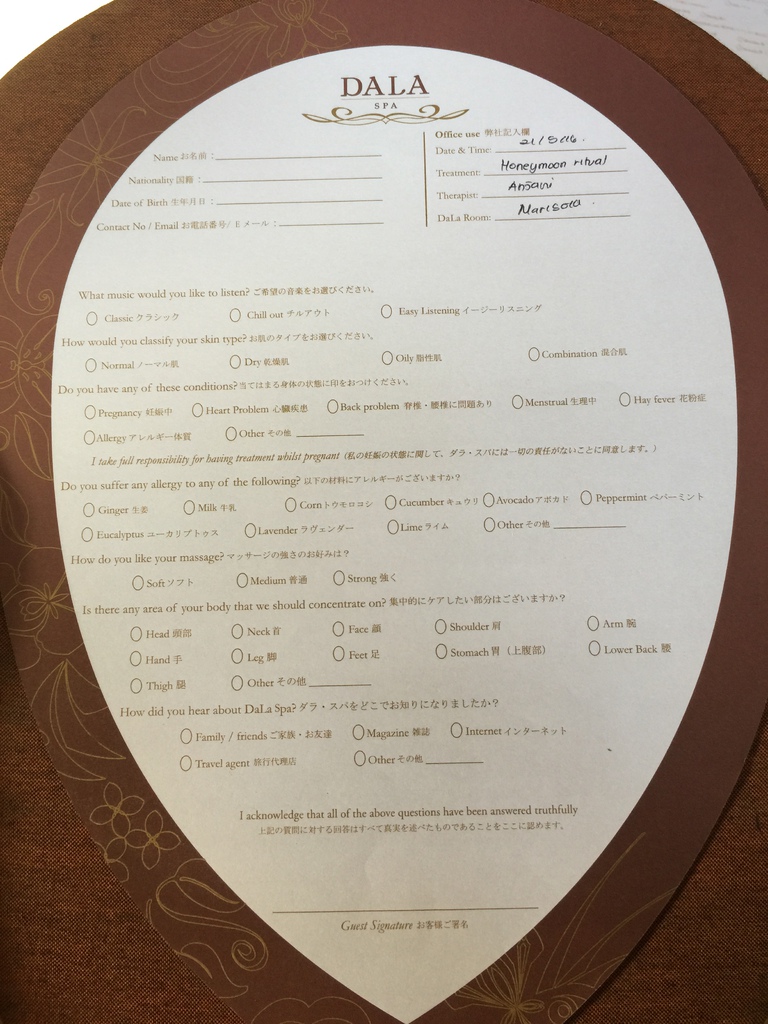 DALA
SPA
Office use 弊社記入欄
Date & Time: 21/5/16.
Treatment: Honeymoon ritual
Therapist:
DaLa Room:
Name お名前 :
Nationality 国籍 :
Date of Birth 生年月日 :
Contact No / Email お電話番号/ Eメール :
What music would you like to listen? ご希望の音楽をお選びください。
Classic クラシック Chill out チルアウト Easy Listening イージーリスニング
How would you classify your skin type? お肌のタイプをお選びください。
Normal ノーマル肌 Dry 乾燥肌 Oily 脂性肌 Combination 混合肌
Do you have any of these conditions? 当てはまる身体の状態に印をおつけください。
Pregnancy 妊娠中 Heart Problem 心臓疾患 Back problem 脊椎・腰椎に問題あり Menstrual 生理中 Hay fever 花粉症
Allergy アレルギー体質 Other その他
I take full responsibility for having treatment whilst pregnant (私の妊娠の状態に関して、ダラ・スパには一切の責任がないことに同意します。)
Do you suffer any allergy to any of the following? 以下の材料にアレルギーがございますか?
Ginger 生姜 Milk 牛乳 Corn トウモロコシ Cucumber キュウリ Avocado アボカド Peppermint ペパーミント
Eucalyptus ユーカリプトゥス Lavender ラヴェンダー Lime ライム Other その他
How do you like your massage? マッサージの強さのお好みは?
Soft ソフト Medium 普通 Strong 強く
Is there any area of your body that we should concentrate on? 集中的にケアしたい部分はございますか?
Head 頭部 Neck 首 Face 顔 Shoulder 肩 Arm 腕
Hand 手 Leg 脚 Feet 足 Stomach 胃 (上腹部) Lower Back 腰
Thigh 腿 Other その他
How did you hear about DaLa Spa? ダラ・スパをどこでお知りになりましたか?
Family / friends ご家族・お友達 Magazine 雑誌 Internet インターネット
Travel agent 旅行代理店 Other その他
I acknowledge that all of the above questions have been answered truthfully
上記の質問に対する回答はすべて真実を述べたものであることをここに認めます。
Guest Signature お客様ご署名